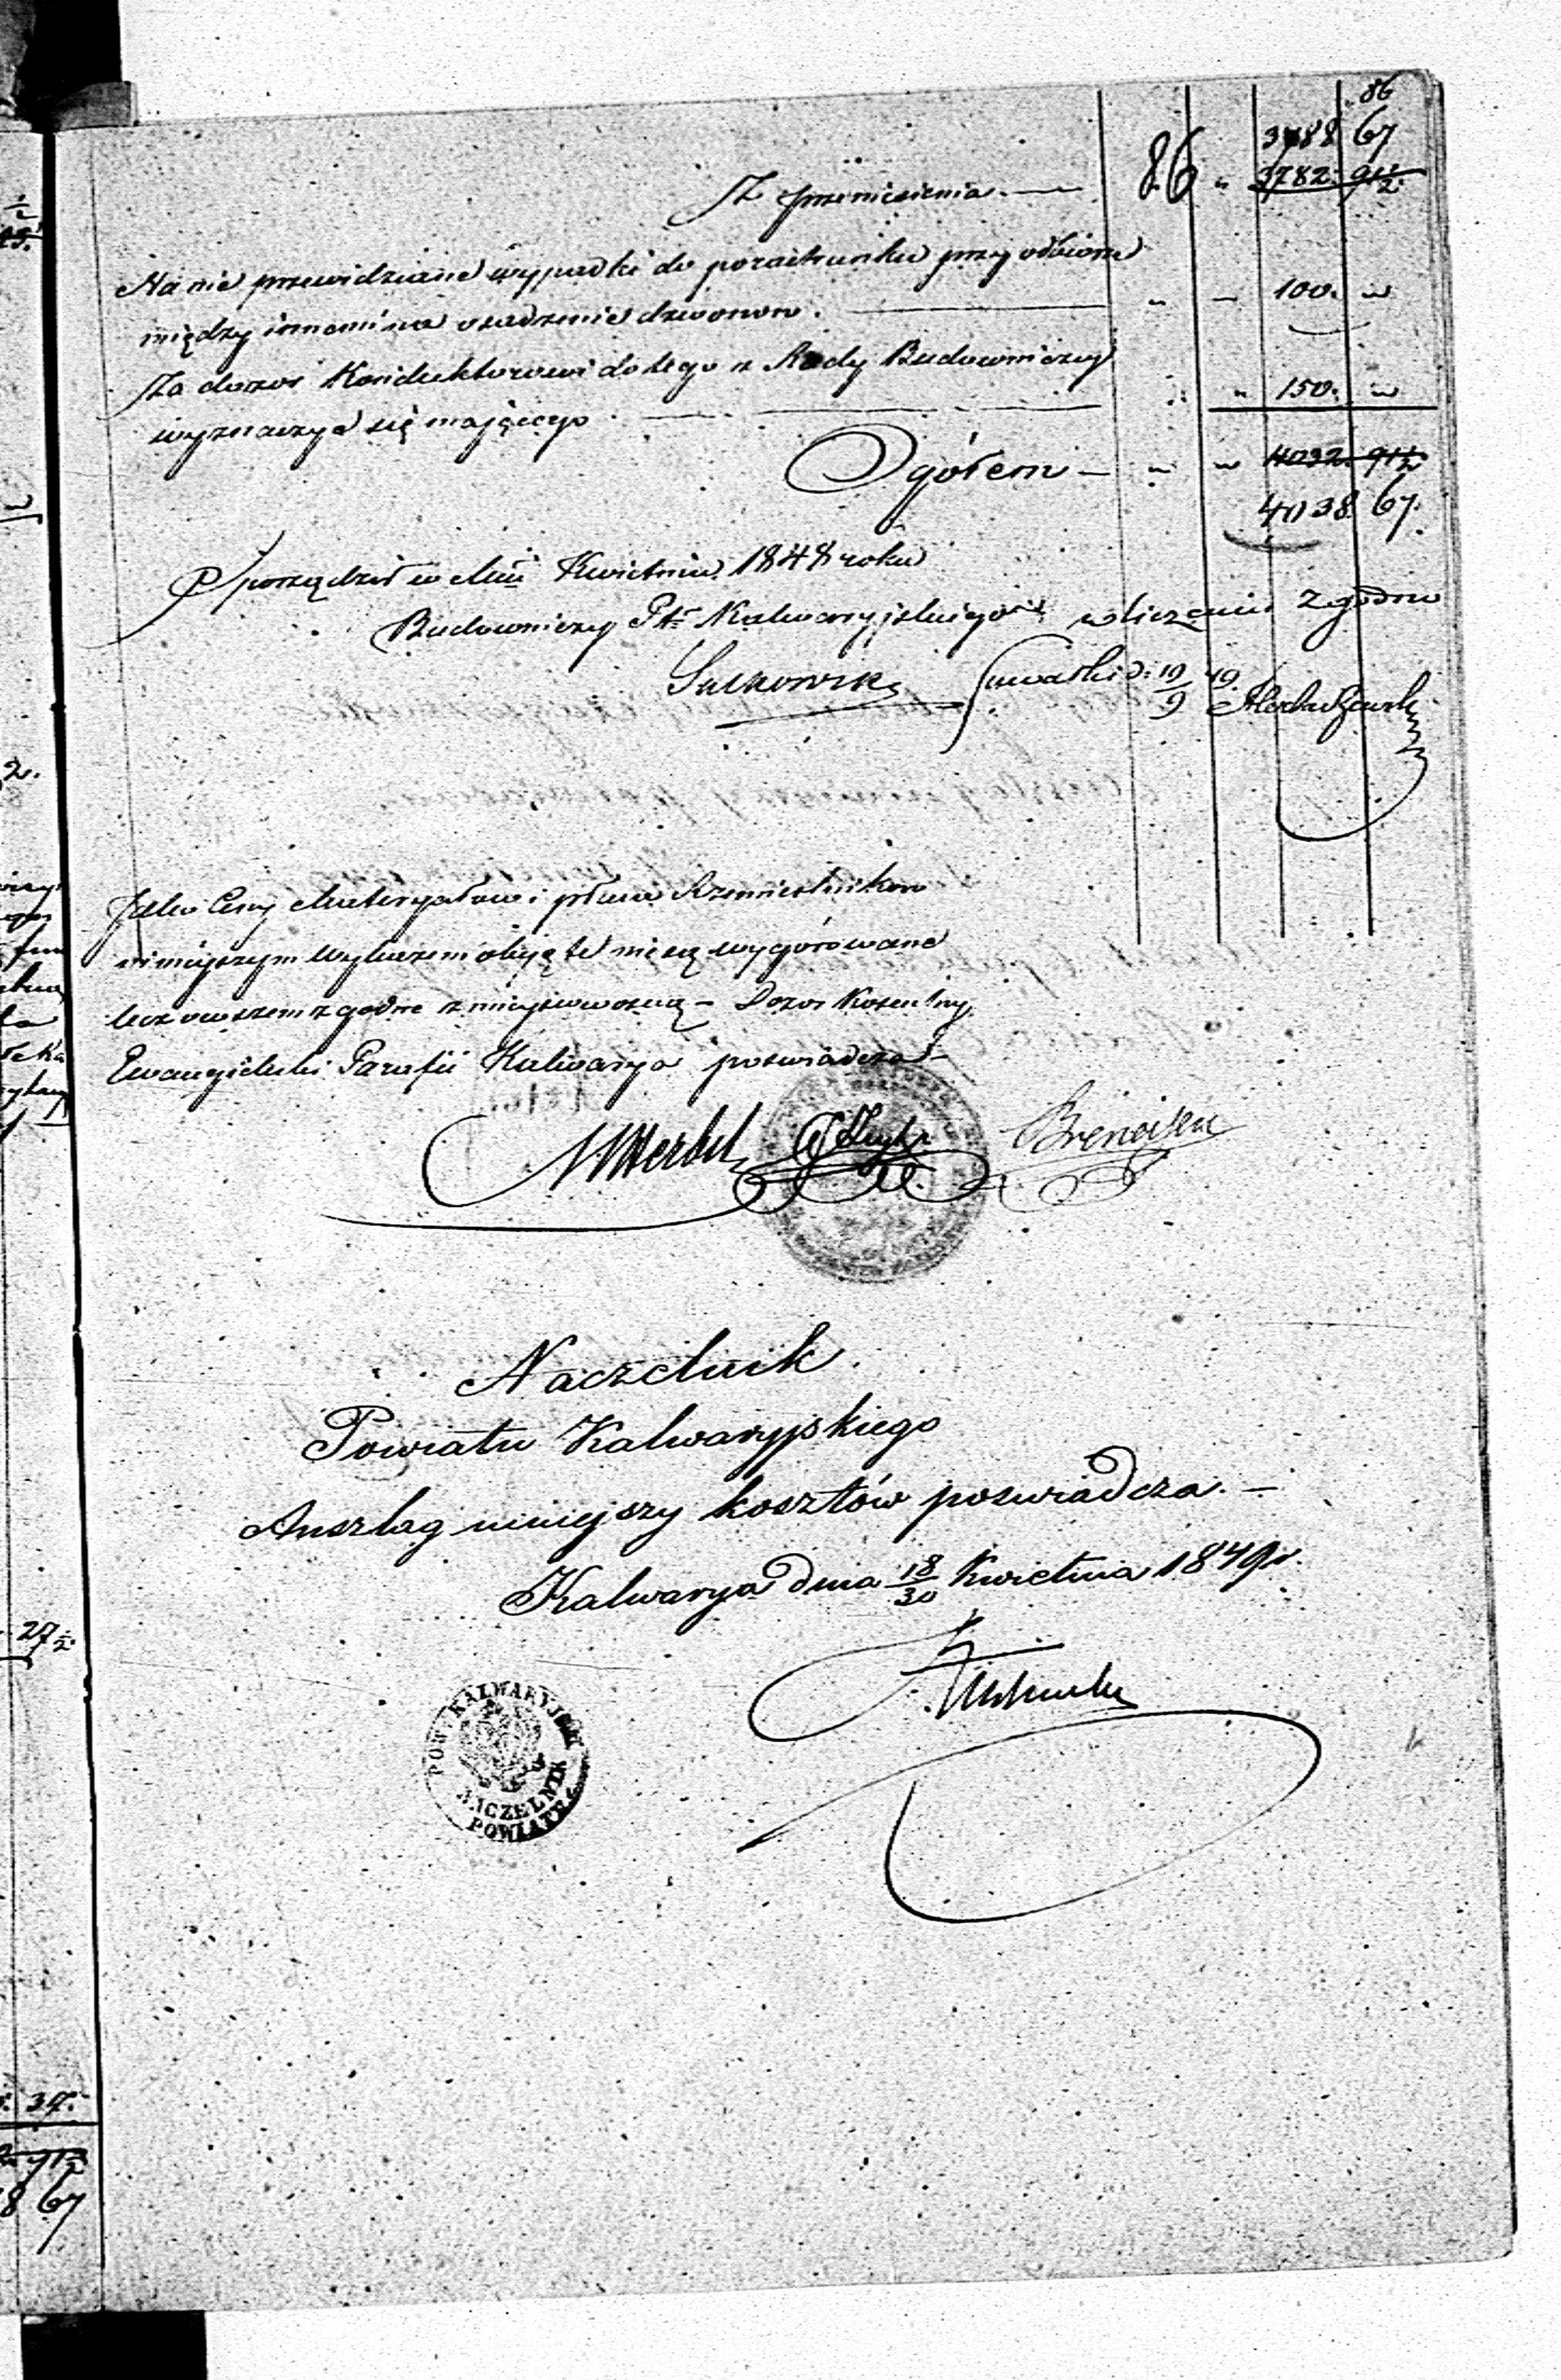 86
3788 67
Z przeniesienia 86 " 3782. 91½
Na nie przewidziane wypadki do porachunku przy odbiorze
między innemi na osadzenie dzwonow. " – 100. "
Za dozor Konduktorowi do tego z Rady Budowniczey
wyznaczyć się mającego " 150. "
Ogółem – " " 4032. 91½
4038 67.
Sporządził w Kwietniu 1848 roku
Budowniczy Ptu Kalwaryjskiego w liczeniu zgodno
Suwałki d: 19/9 49.
Jako Ceny Materyałow i płaca Rzemieslnikow
niniejszym wykazem objęte nie są wygórowane
lecz owszem zgodne z miejscowością – Dozor Koscielny
Ewangielicki Parafii Kalwarya poswiadcza –
Naczelnik
Powiatu Kalwaryjskiego
Anszlag niniejszy kosztów poswiadcza. –
Kalwarya dnia 18/30 Kwietnia 1849 r.
POW. KALWARYJSKI
NACZELNIK
POWIATU
2.
27½
37.
91½
8 67